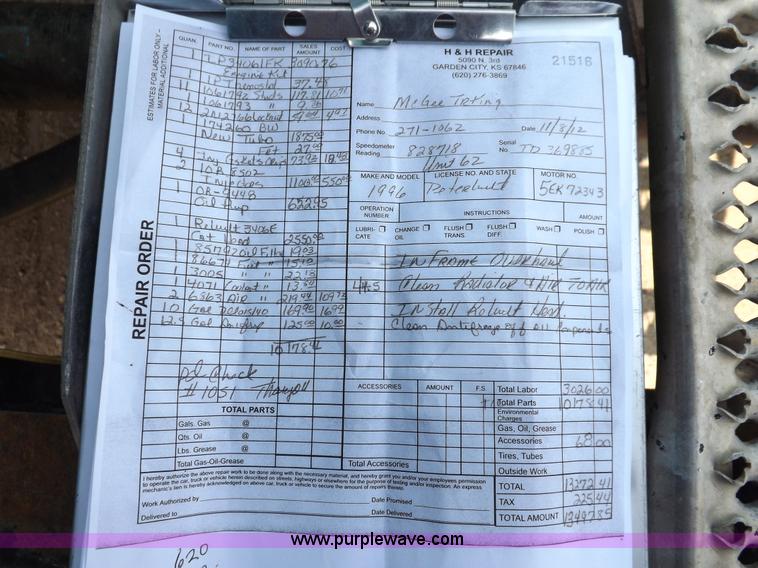 H & H REPAIR
5090 N. 3rd
GARDEN CITY, KS 67846
(620) 276-3869
21516
ESTIMATES FOR LABOR ONLY –
MATERIAL ADDITIONAL
REPAIR ORDER
QUAN. PART NO. NAME OF PART SALES AMOUNT COST
1 3090.76
Engine Kit
1 37.48
11 1061792 Studs 117.81
1 1061793 "
12
1 174260 BW
New Turbo 1875.00
27.00
4
2 10R 8502
Injectors 1100.00 550.00
1 0R-9448
Oil Pump 622.95
1 Rebuilt 3406E
Cat Head 2550.00
1 Oil Filter 19.03
1 8667 Fuel " 15.10
1 3005 " "
1 4071 Coolant "
2 6363 Air "
10 Gal
12.5 Gal 125.00
10178.41
pd Check
# 1051
TOTAL PARTS
Gals. Gas @
Qts. Oil @
Lbs. Grease @
Total Gas-Oil-Grease
Name McGee Trking
Address
Phone No. 271-1062 Date 11/8/12
Speedometer Reading 828718 Serial No. TD 369885
Unit 62
MAKE AND MODEL LICENSE NO. AND STATE MOTOR NO.
1996 Peterbuilt 5EK72343
OPERATION NUMBER INSTRUCTIONS AMOUNT
LUBRICATE CHANGE OIL FLUSH TRANS. FLUSH DIFF. WASH POLISH
INFRAME OVERHAUL
44.5 Clean Radiator & AIR TO AIR
INSTALL Rebuilt Head.
Clean Antifreeze off All
ACCESSORIES AMOUNT F.S.
Total Accessories
Total Labor 3026.00
Total Parts 10178.41
Environmental Charges
Gas, Oil, Grease
Accessories 68.00
Tires, Tubes
Outside Work
TOTAL 13272.41
TAX 225.44
TOTAL AMOUNT 13497.85
I hereby authorize the above repair work to be done along with the necessary material, and hereby grant you and/or your employees permission
to operate the car, truck or vehicle herein described on streets, highways or elsewhere for the purpose of testing and/or inspection. An express
mechanic's lien is hereby acknowledged on above car, truck or vehicle to secure the amount of repairs thereto.
Work Authorized by Date Promised
Delivered to Date Delivered
www.purplewave.com
620